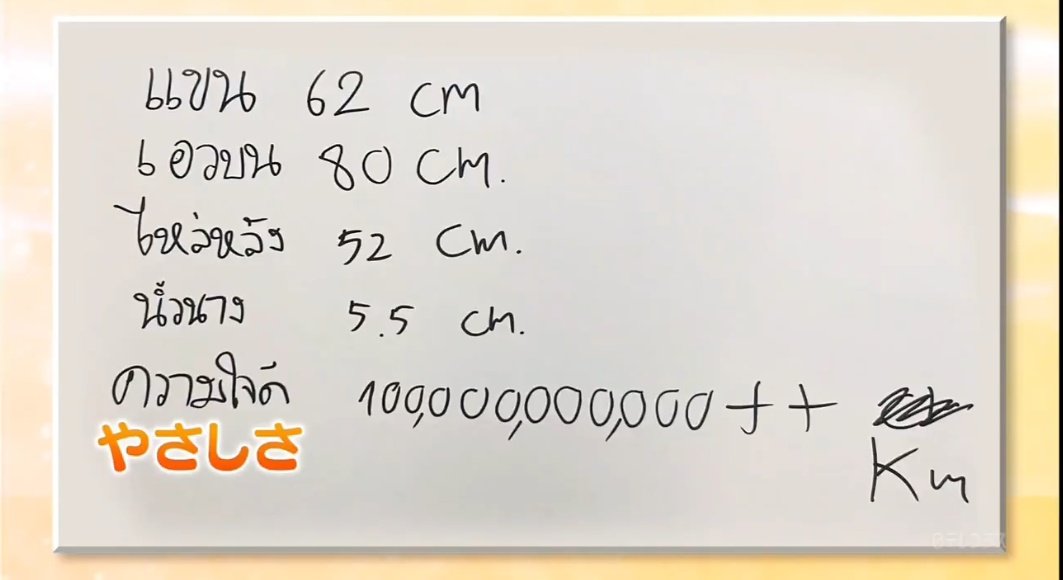 แขน 62 cm
เอวบน 80 cm.
ไหล่หลัง 52 cm.
นิ้วนาง 5.5 cm.
ความใจดี 100,000,000,000 ++
Km
やさしさ